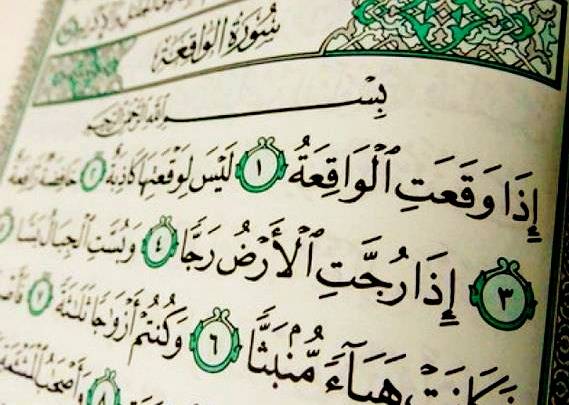 سُورَةُ الوَاقِعَةِ
بِسْمِ اللَّهِ الرَّحْمَٰنِ الرَّحِيمِ
إِذَا وَقَعَتِ ٱلْوَاقِعَةُ ١ لَيْسَ لِوَقْعَتِهَا كَاذِبَةٌ ٢ خَافِضَةٌ رَّافِعَةٌ
٣ إِذَا رُجَّتِ ٱلْأَرْضُ رَجًّا ٤ وَبُسَّتِ ٱلْجِبَالُ بَسًّا
فَكَانَتْ هَبَآءً مُّنۢبَثًّا ٦ وَكُنتُمْ أَزْوَٰجًا ثَلَٰثَةً ٧
٨ وَأَصْحَٰبُ